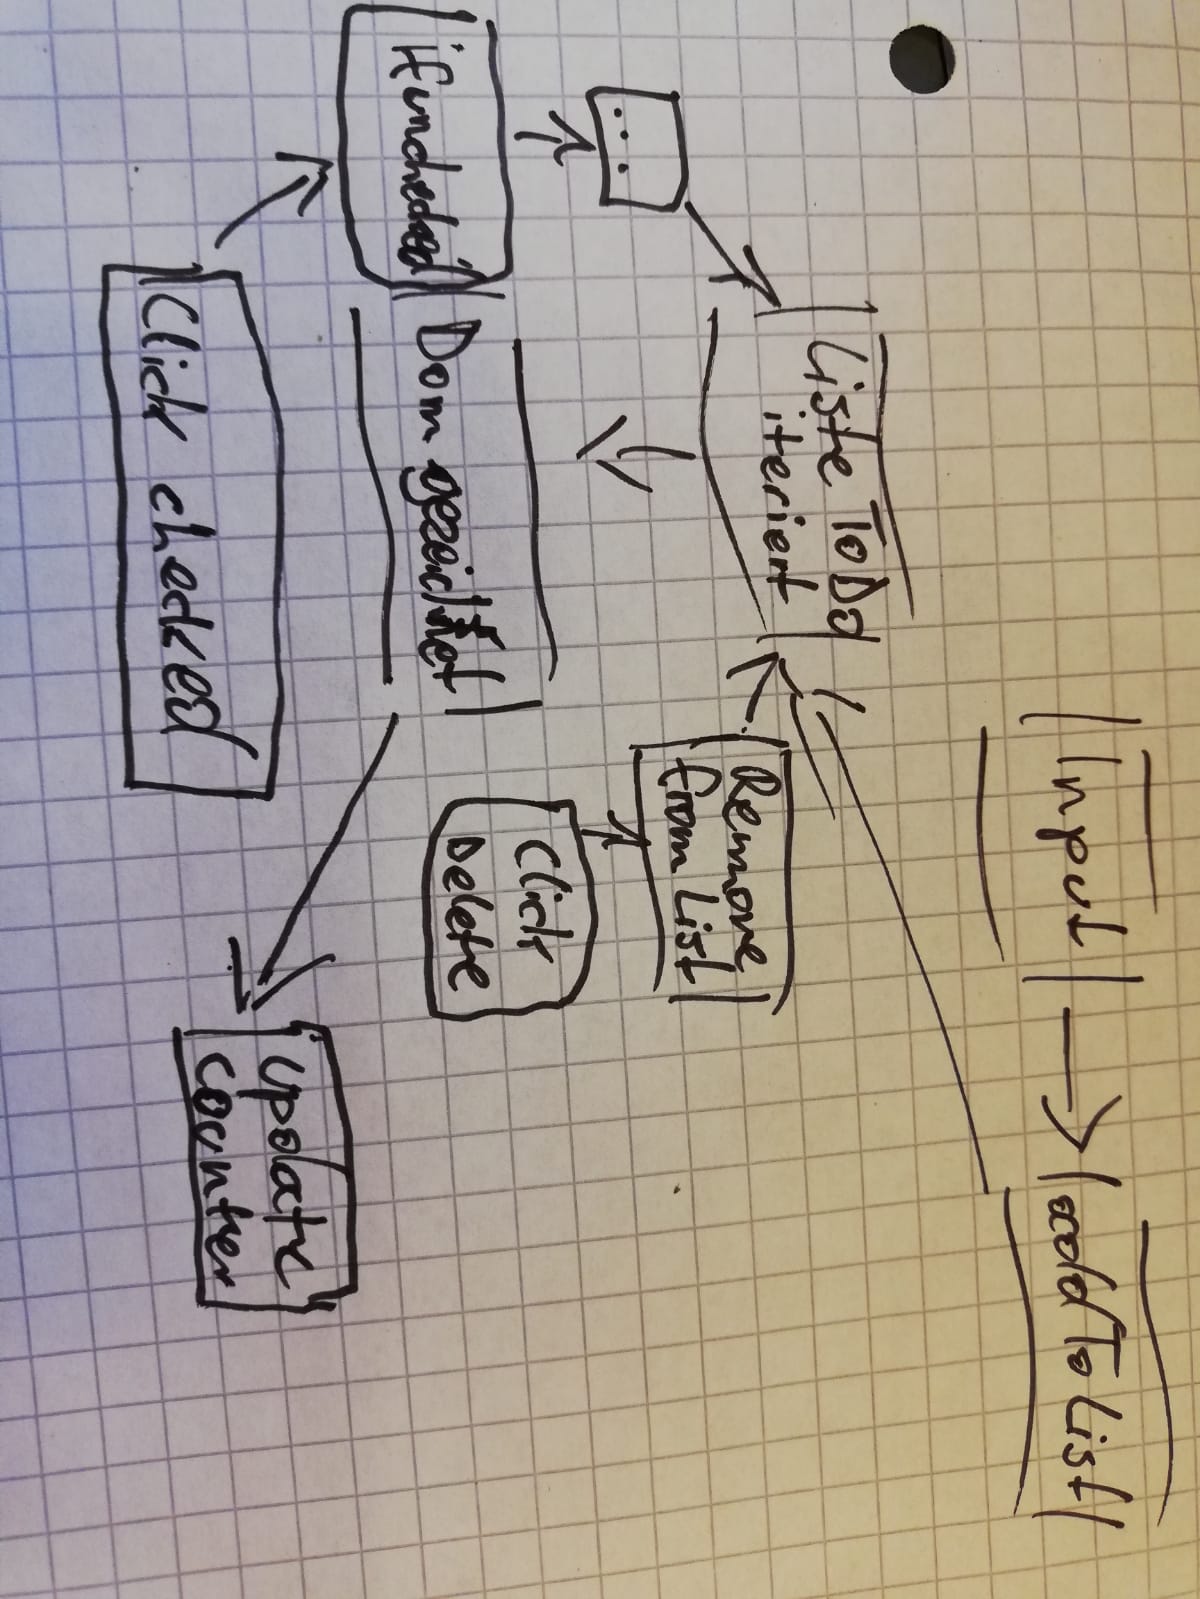 Input
addToList
Liste ToDo
iteriert
Remove
from List
...
Click
Delete
if unchecked
Dom gezeichnet
update
counter
Click checked